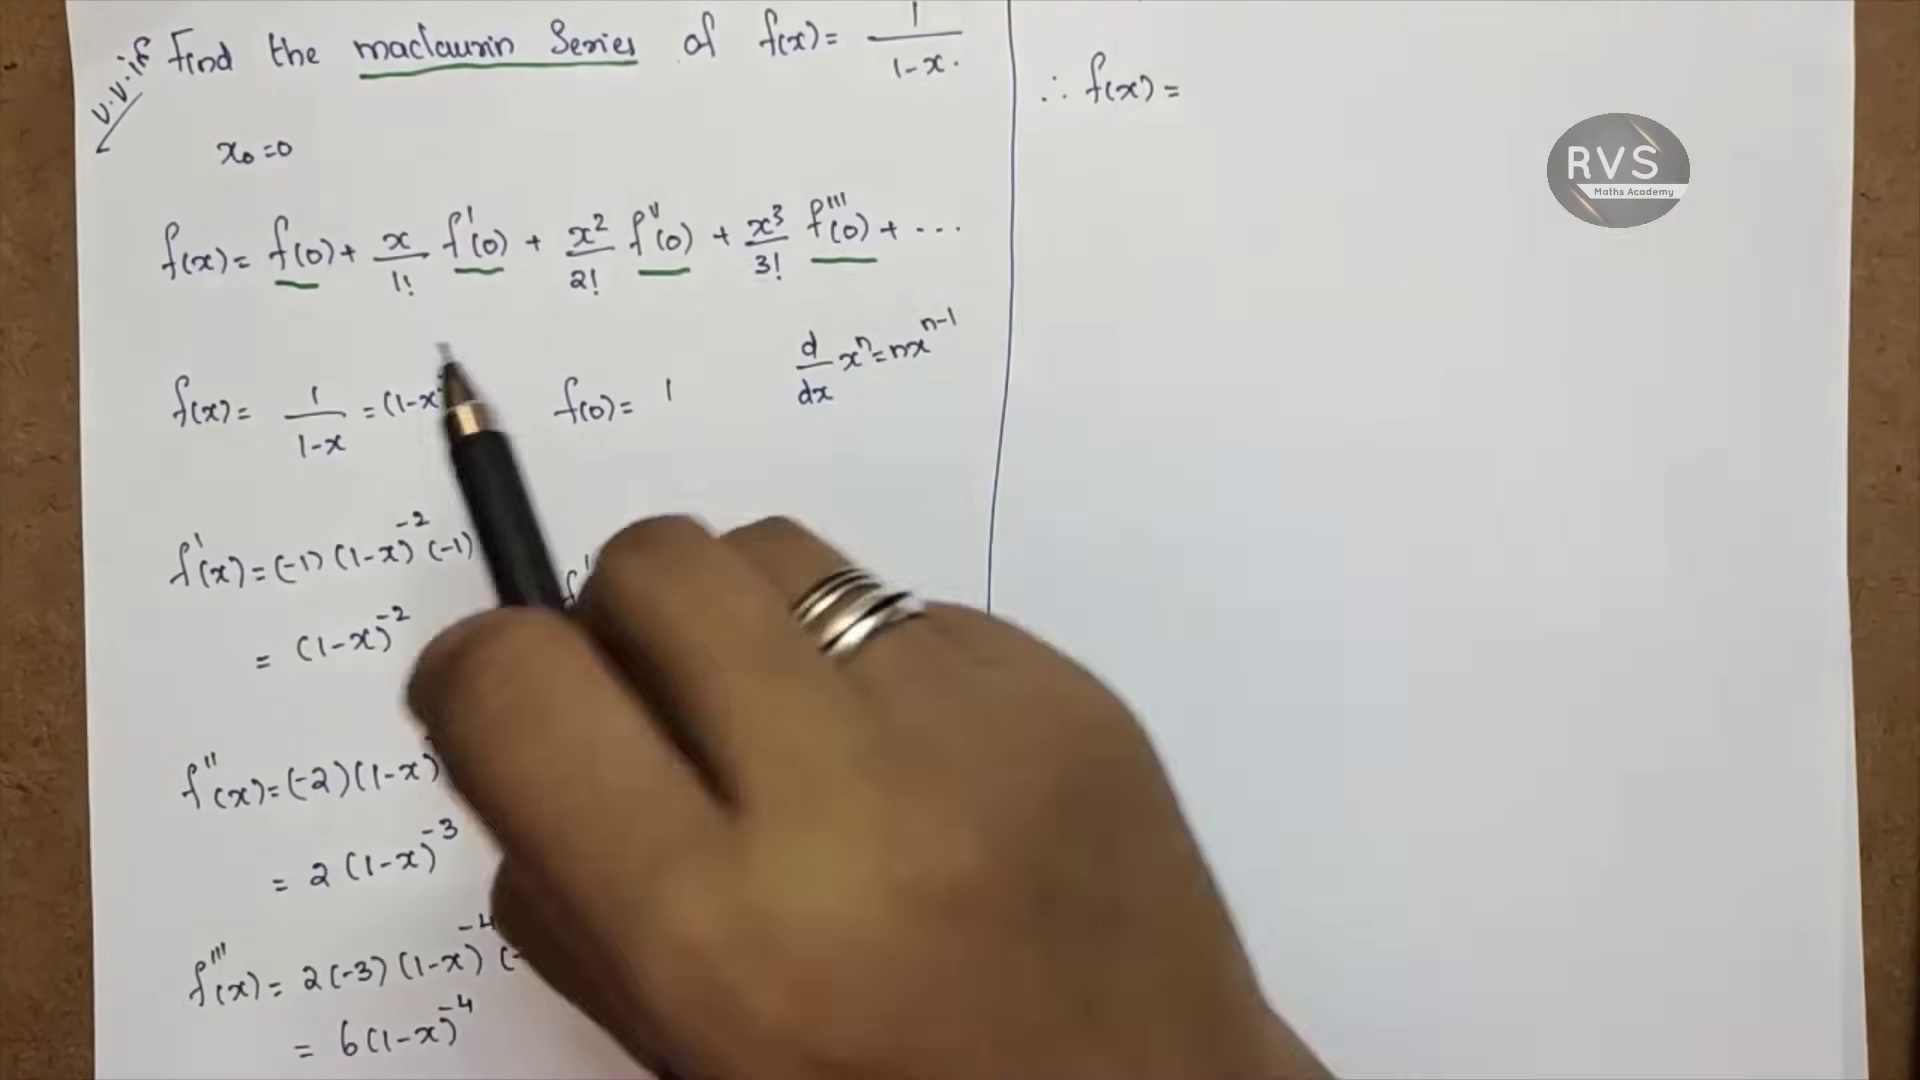 v.v.if Find the maclaurin Series of f(x) = 1/1-x.
x₀=0
f(x) = f(0) + x/1! f'(0) + x²/2! f''(0) + x³/3! f'''(0) + ...
f(x) = 1/1-x = (1-x f(0) = 1 d/dx xⁿ = nxⁿ⁻¹
f'(x) = (-1) (1-x)⁻² (-1) f'
= (1-x)⁻²
f''(x) = (-2) (1-x)
= 2 (1-x)⁻³
f'''(x) = 2 (-3) (1-x)⁻⁴ (-
= 6 (1-x)⁻⁴
∴ f(x) =
RVS
Maths Academy